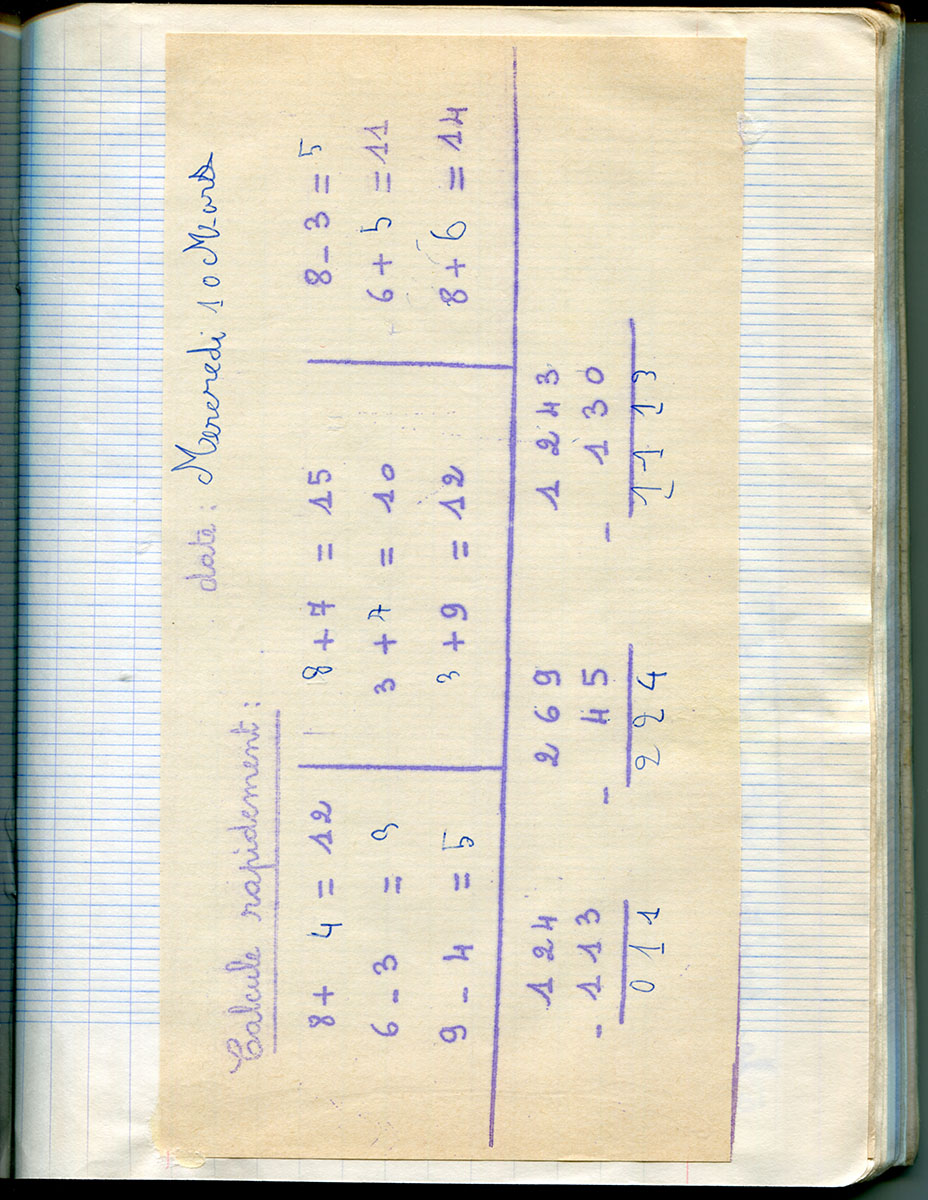 date : Mercredi 10 Mars
Calcule rapidement :
8 + 4 = 12
6 - 3 = 3
9 - 4 = 5
8 + 7 = 15
3 + 7 = 10
3 + 9 = 12
8 - 3 = 5
6 + 5 = 11
8 + 6 = 14
124
- 113
011
269
- 45
224
1 243
- 130
1 113